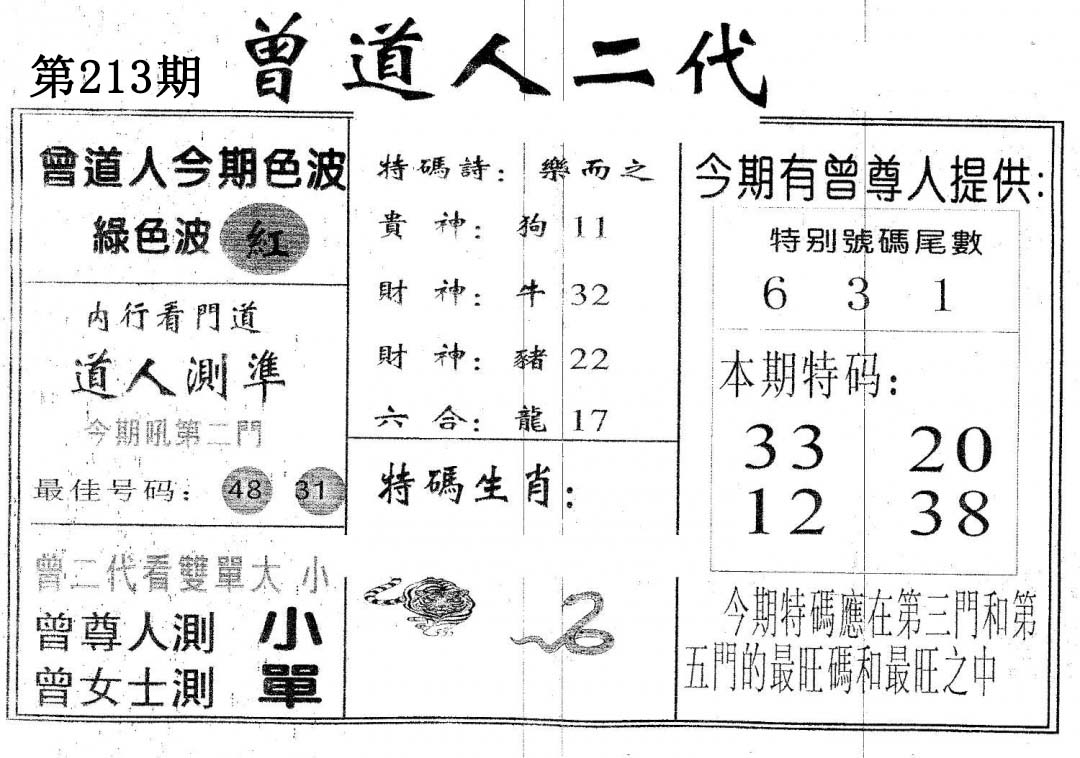 第213期
曾道人二代
曾道人今期色波
綠色波 紅
内行看門道
道人測準
今期吼第二門
最佳号码： 48 31
曾二代看雙單大 小
曾尊人測 小
曾女士測 單
特碼詩： 樂而之
貴 神： 狗 11
財 神： 牛 32
財 神： 豬 22
六 合： 龍 17
特碼生肖：
今期有曾尊人提供：
特别號碼尾數
6 3 1
本期特码：
33 20
12 38
今期特碼應在第三門和第
五門的最旺碼和最旺之中